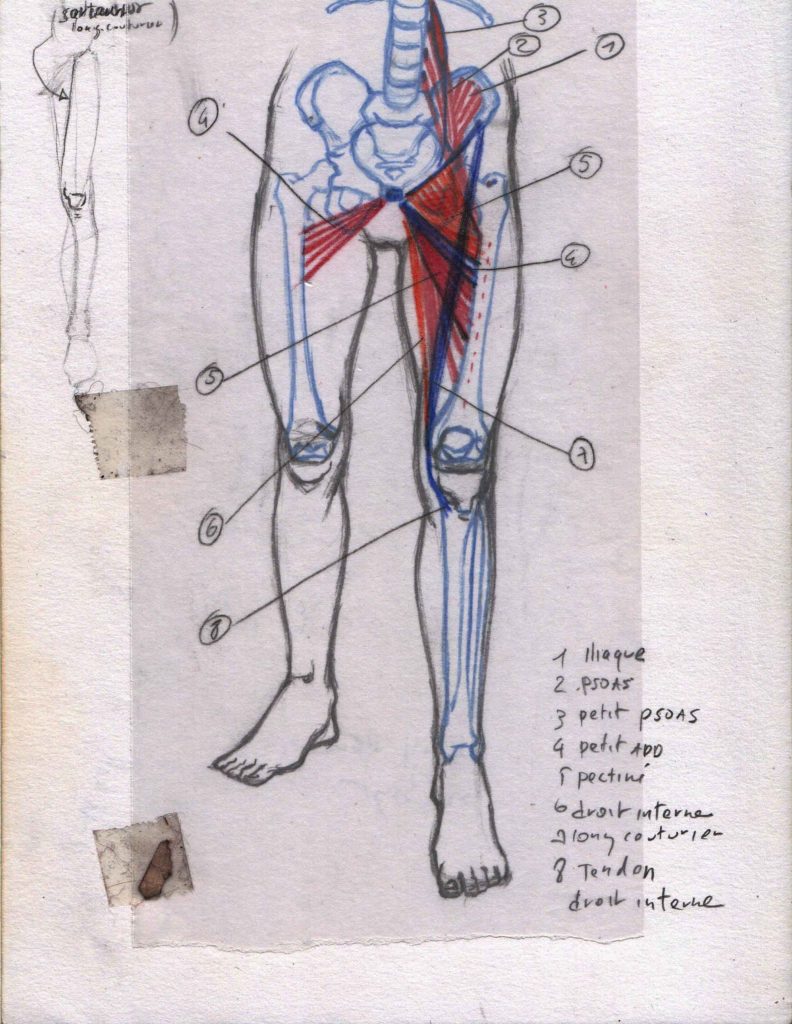 long couturier
3
2
1
4'
5
4
5
7
6
8
1 Iliaque
2 .PSOAS
3 petit PSOAS
4 petit ADD
5 pectiné
6 droit interne
7 long couturier
8 Tendon
droit interne